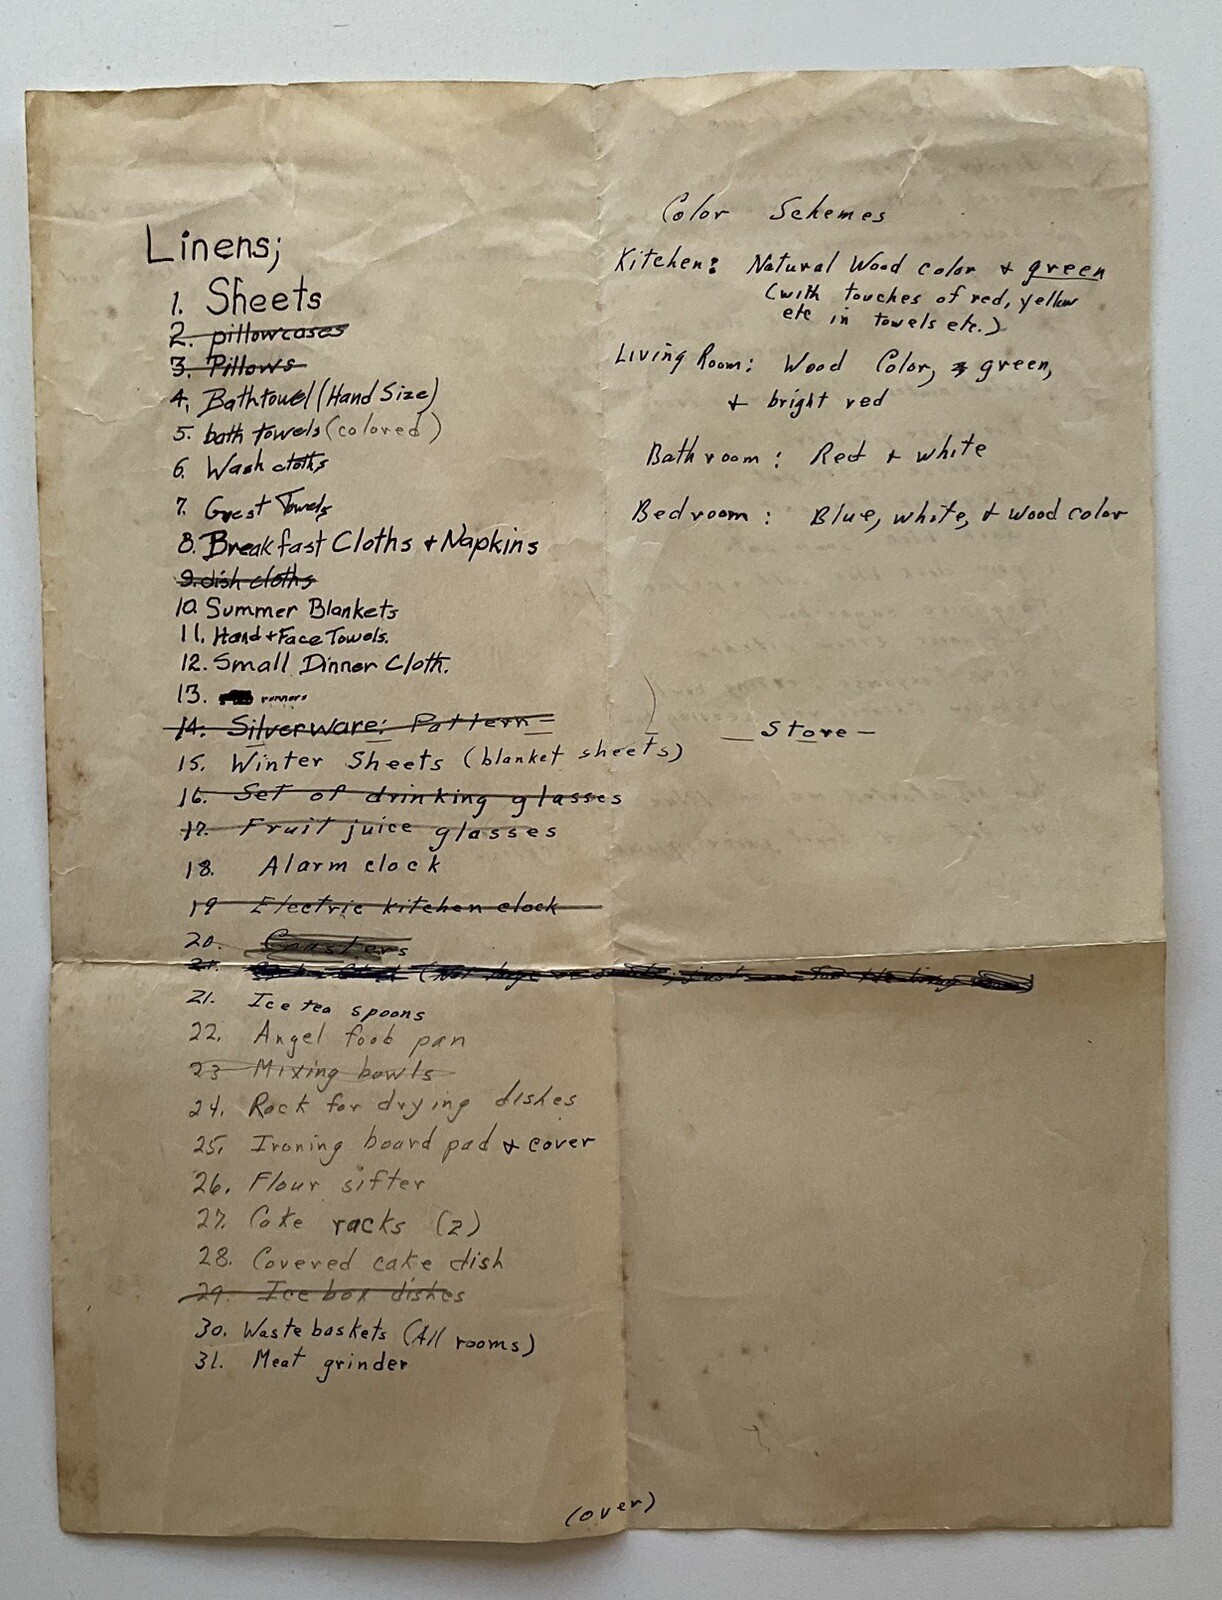 Linens;
1. Sheets
2. pillowcases
3. Pillows
4. Bathtowel (Hand Size)
5. bath towels (colored)
6. Wash cloths
7. Guest Towels
8. Breakfast Cloths + Napkins
9. dish cloths
10. Summer Blankets
11. Hand + Face Towels.
12. Small Dinner Cloth.
13. runners
14. Silverware: Pattern
15. Winter Sheets (blanket sheets)
16. Set of drinking glasses
17. Fruit juice glasses
18. Alarm clock
19 Electric kitchen clock
20. Coasters
21. (Not large or small, just for the living room)
21. Ice tea spoons
22. Angel foob pan
23 Mixing bowls
24. Rack for drying dishes
25. Ironing board pad + cover
26. Flour sifter
27. Cake racks (2)
28. Covered cake dish
29. Ice box dishes
30. Waste baskets (All rooms)
31. Meat grinder
(over)
Color Schemes
Kitchen: Natural Wood color + green
(with touches of red, yellow
etc in towels etc.)
Living Room: Wood Color, green,
+ bright red
Bathroom: Red + white
Bedroom: Blue, white, + wood color
— Store —